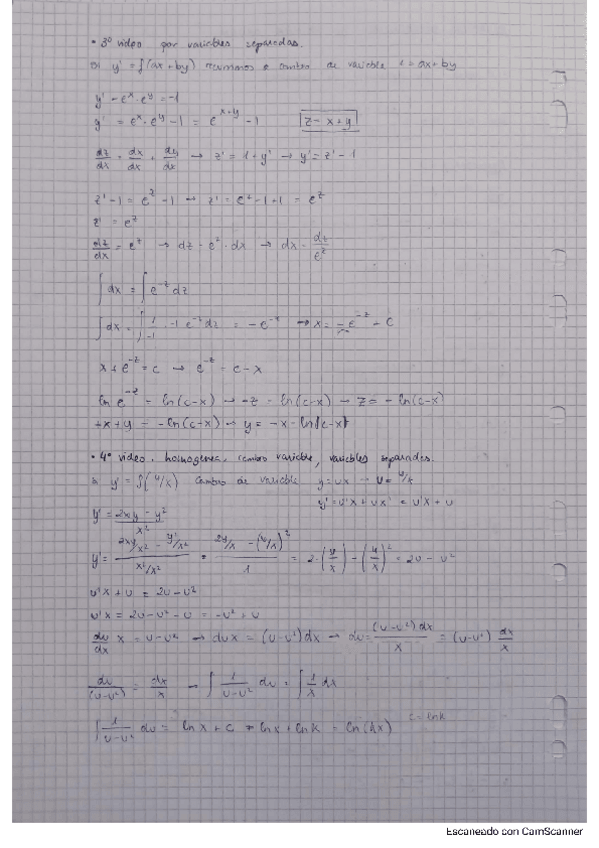 • 3º video por variables separadas.
Si y' = f(ax+by) recurrimos a cambio de variable z = ax+by
y' - eˣ·eʸ = -1
y' = eˣ·eʸ - 1 = e^(x+y) - 1 z = x+y
dz/dx = dx/dx + dy/dx → z' = 1+y' → y' = z' - 1
z' - 1 = e^z - 1 → z' = e^z - 1 + 1 = e^z
z' = e^z
dz/dx = e^z → dz = e^z · dx → dx = dz/e^z
∫dx = ∫e^(-z) dz
∫dx = ∫ 1/-1 · -1 e^(-z) dz = -e^(-z) → x = -e^(-z) + C
x + e^(-z) = c → e^(-z) = c - x
ln e^(-z) = ln(c-x) → -z = ln(c-x) → z = -ln(c-x)
+x+y = -ln(c-x) → y = -x - ln|c-x|
• 4º video. homogenea, cambio variable, variables separadas.
Si y' = f(y/x) cambio de variable y = ux → u = y/x
y' = u'x + ux' = u'x + u
y' = (2xy - y²)/x²
y' = (2xy/x² - y²/x²)/(x²/x²) = (2y/x - (y/x)²)/1 = 2·(y/x) - (y/x)² = 2u - u²
u'x + u = 2u - u²
u'x = 2u - u² - u = -u² + u
du/dx x = u - u² → du x = (u-u²)dx → du = (u-u²)dx/x = (u-u²) dx/x
du/(u-u²) = dx/x → ∫ 1/(u-u²) du = ∫ 1/x dx
∫ 1/(u-u²) du = ln x + C = ln x + ln k = ln(kx) c = ln k
Escaneado con CamScanner